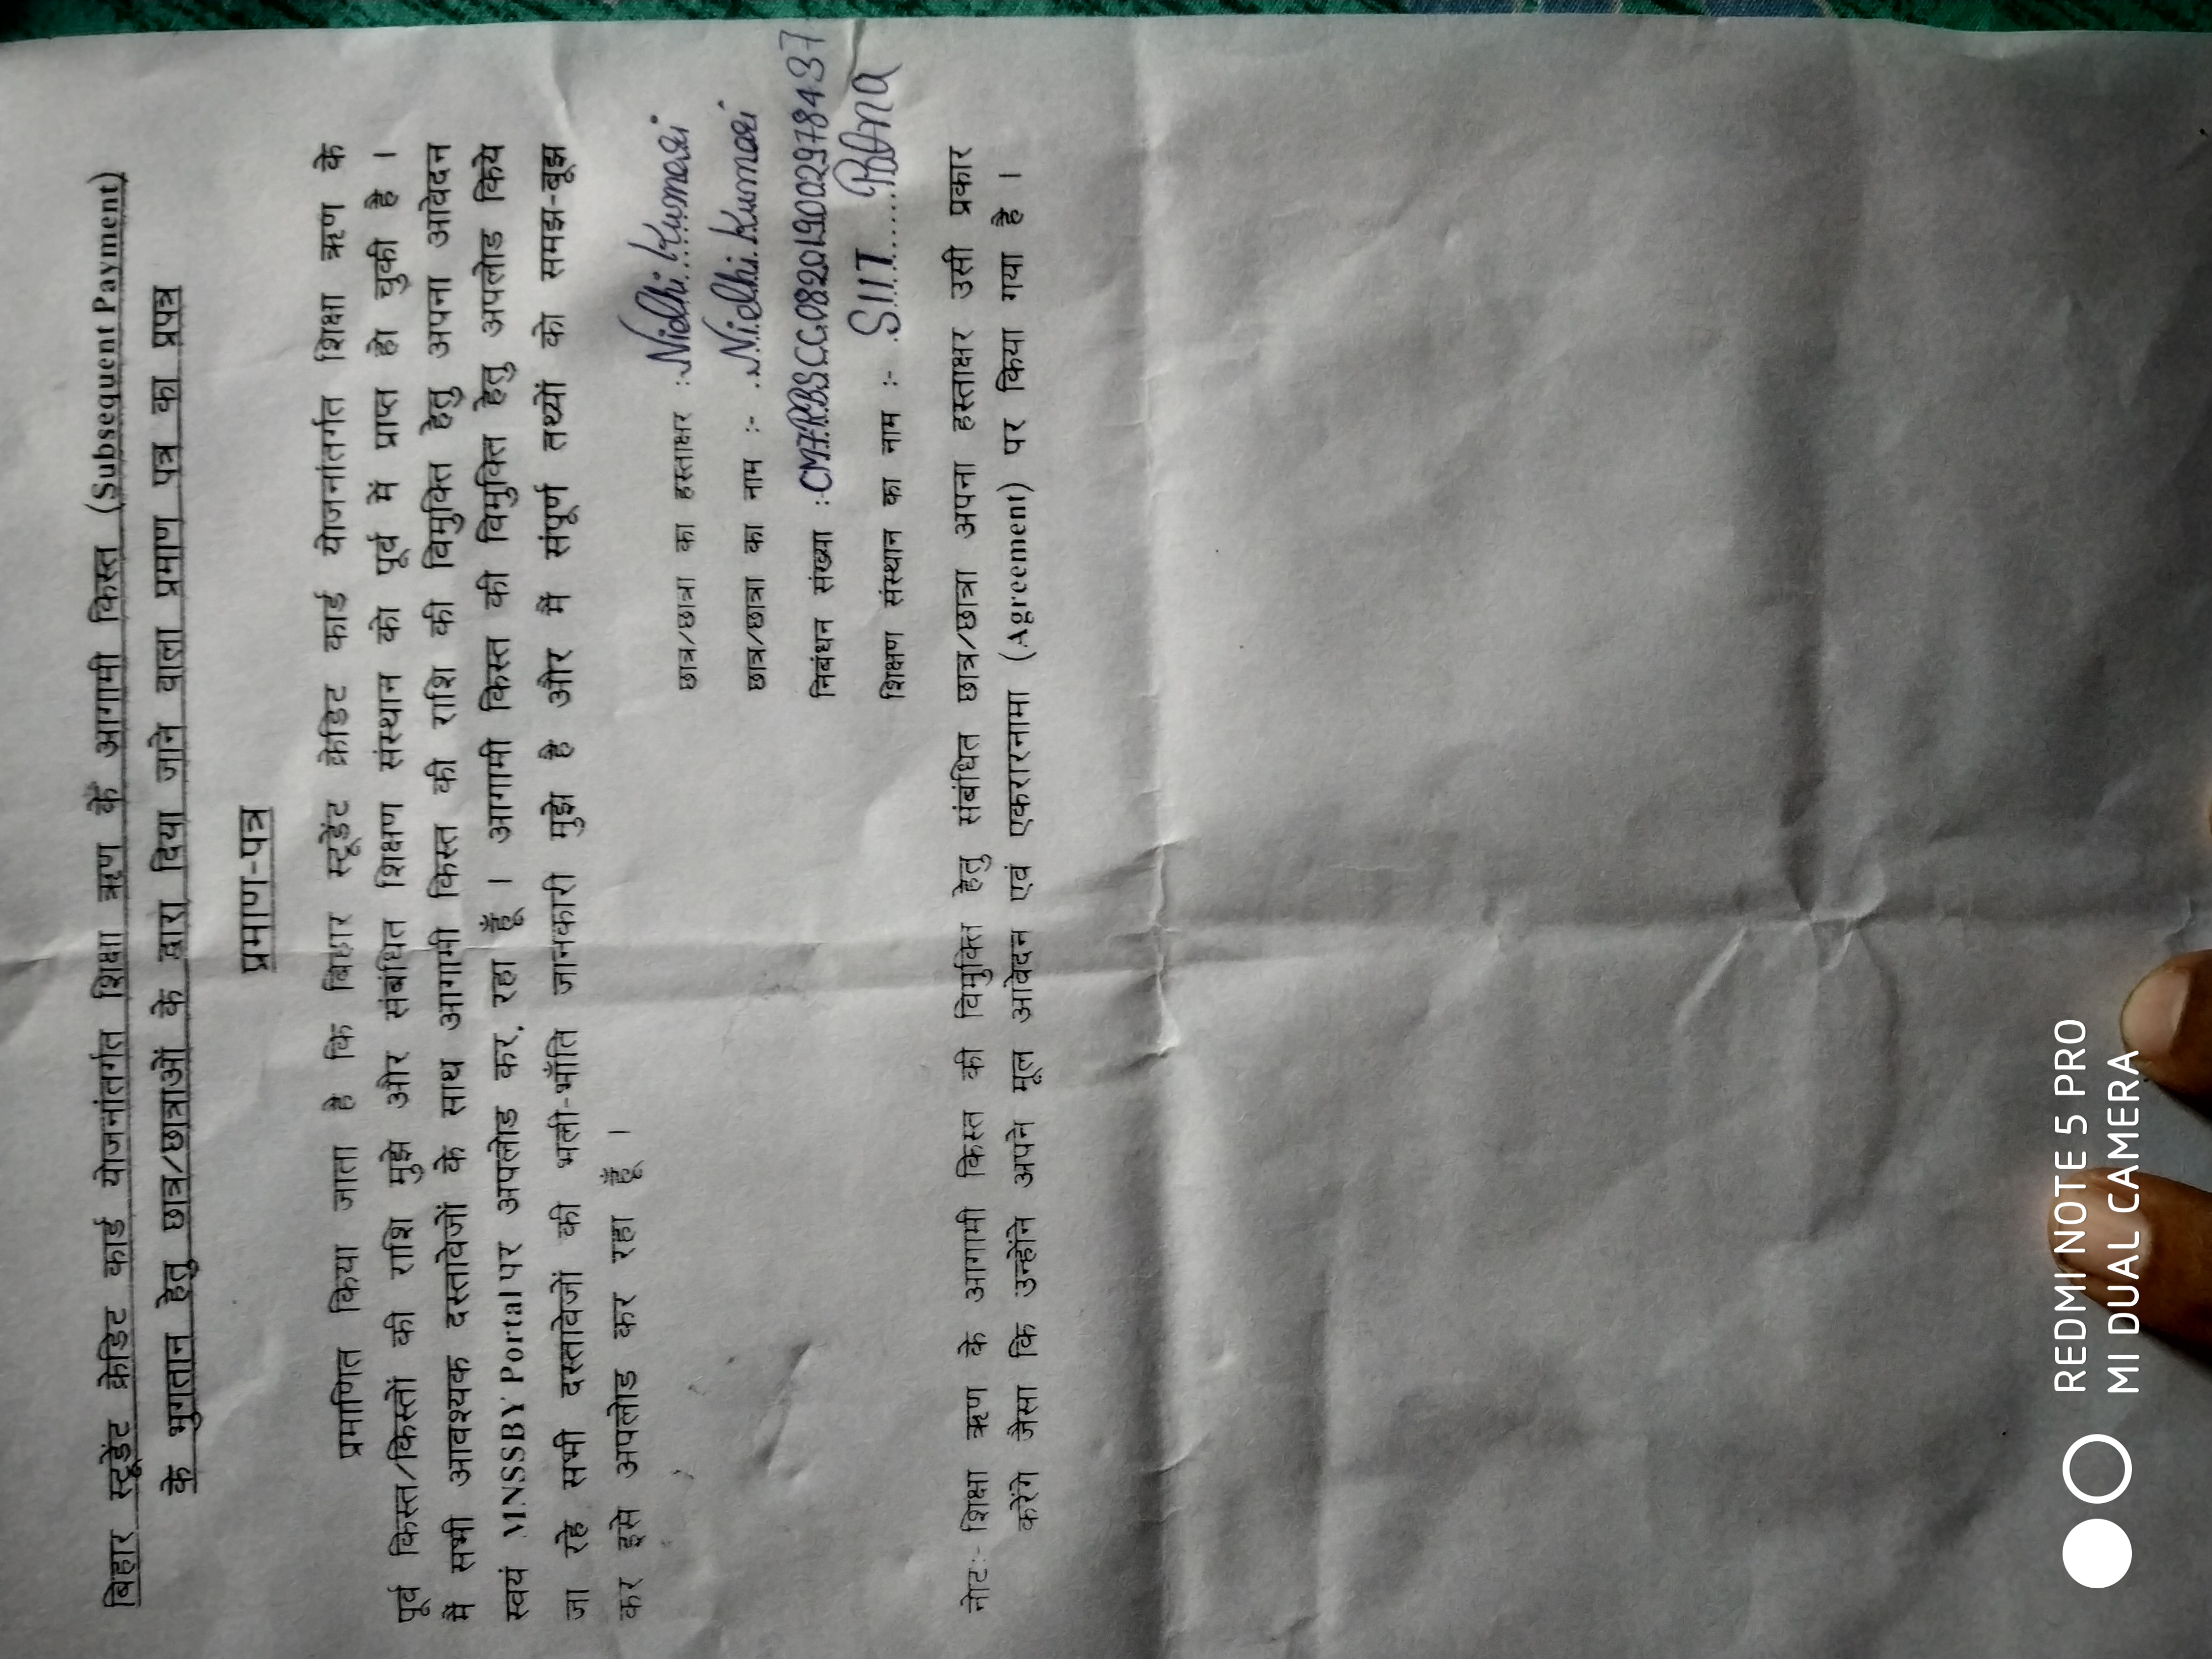 बिहार स्टूडेंट क्रेडिट कार्ड योजनांतर्गत शिक्षा ऋण के आगामी किस्त (Subsequent Payment)
के भुगतान हेतु छात्र/छात्राओं के द्वारा दिया जाने वाला प्रमाण पत्र का प्रपत्र
प्रमाण-पत्र
प्रमाणित किया जाता है कि बिहार स्टूडेंट क्रेडिट कार्ड योजनांतर्गत शिक्षा ऋण के
पूर्व किस्त/किस्तों की राशि मुझे और संबंधित शिक्षण संस्थान को पूर्व में प्राप्त हो चुकी है ।
मैं सभी आवश्यक दस्तावेजों के साथ आगामी किस्त की राशि की विमुक्ति हेतु अपना आवेदन
स्वयं MNSSBY Portal पर अपलोड कर रहा हूँ । आगामी किस्त की विमुक्ति हेतु अपलोड किये
जा रहे सभी दस्तावेजों की भली-भाँति जानकारी मुझे है और मैं संपूर्ण तथ्यों को समझ-बूझ
कर इसे अपलोड कर रहा हूँ ।
छात्र/छात्रा का हस्ताक्षर :Nidhi Kumari
छात्र/छात्रा का नाम :- Nidhi Kumari
निबंधन संख्या :
शिक्षण संस्थान का नाम :- SIIT
नोट:- शिक्षा ऋण के आगामी किस्त की विमुक्ति हेतु संबंधित छात्र/छात्रा अपना हस्ताक्षर उसी प्रकार
करेंगे जैसा कि उन्होंने अपने मूल आवेदन एवं एकरारनामा (Agreement) पर किया गया है ।
REDMI NOTE 5 PRO
MI DUAL CAMERA